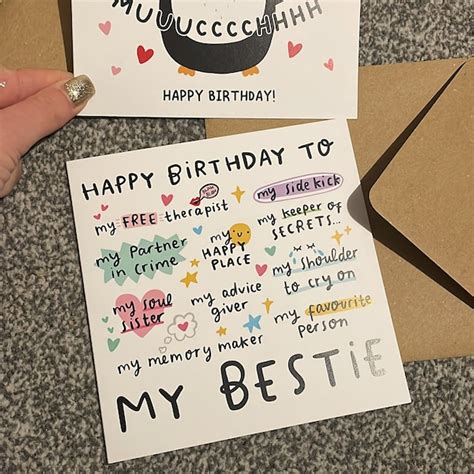 MUUUCCCCHHHH
HAPPY BIRTHDAY!
HAPPY BIRTHDAY TO
my FREE therapist
my side kick
my partner
in crime
my
HAPPY
PLACE
my keeper of
SECRETS...
my soul
sister
my advice
giver
my shoulder
to cry on
my memory maker
my favourite
person
MY BESTIE